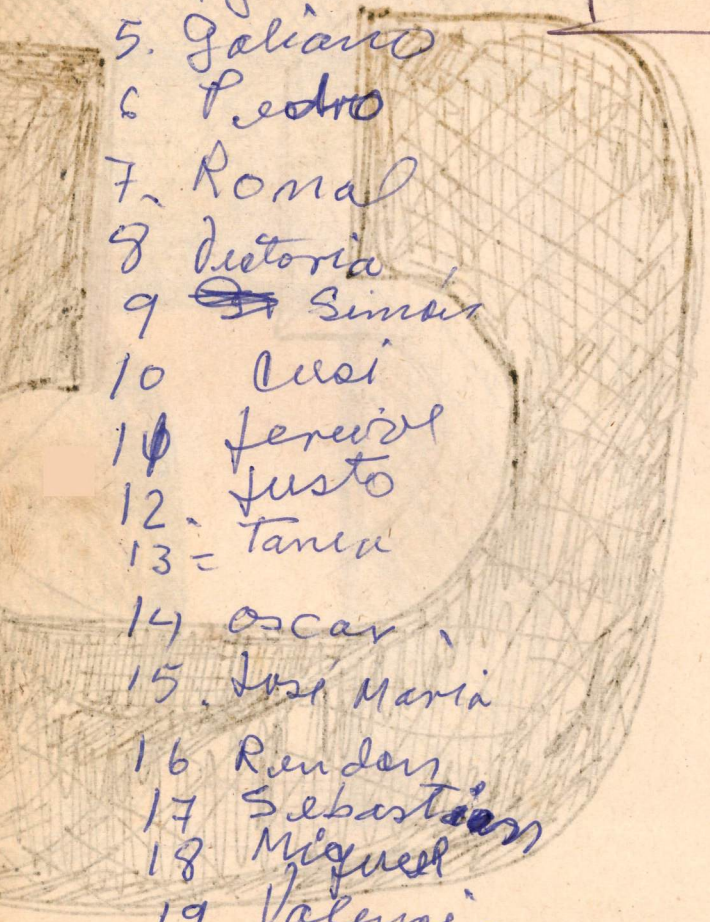 5. Galiano
6 Pedro
7. Ronal
8 Victoria
9 Simón
10 Cusi
11
12. Justo
13 = Tania
14 oscar
15. José Maria
16 Rendon
17 Sebastian
18 Miguel
19